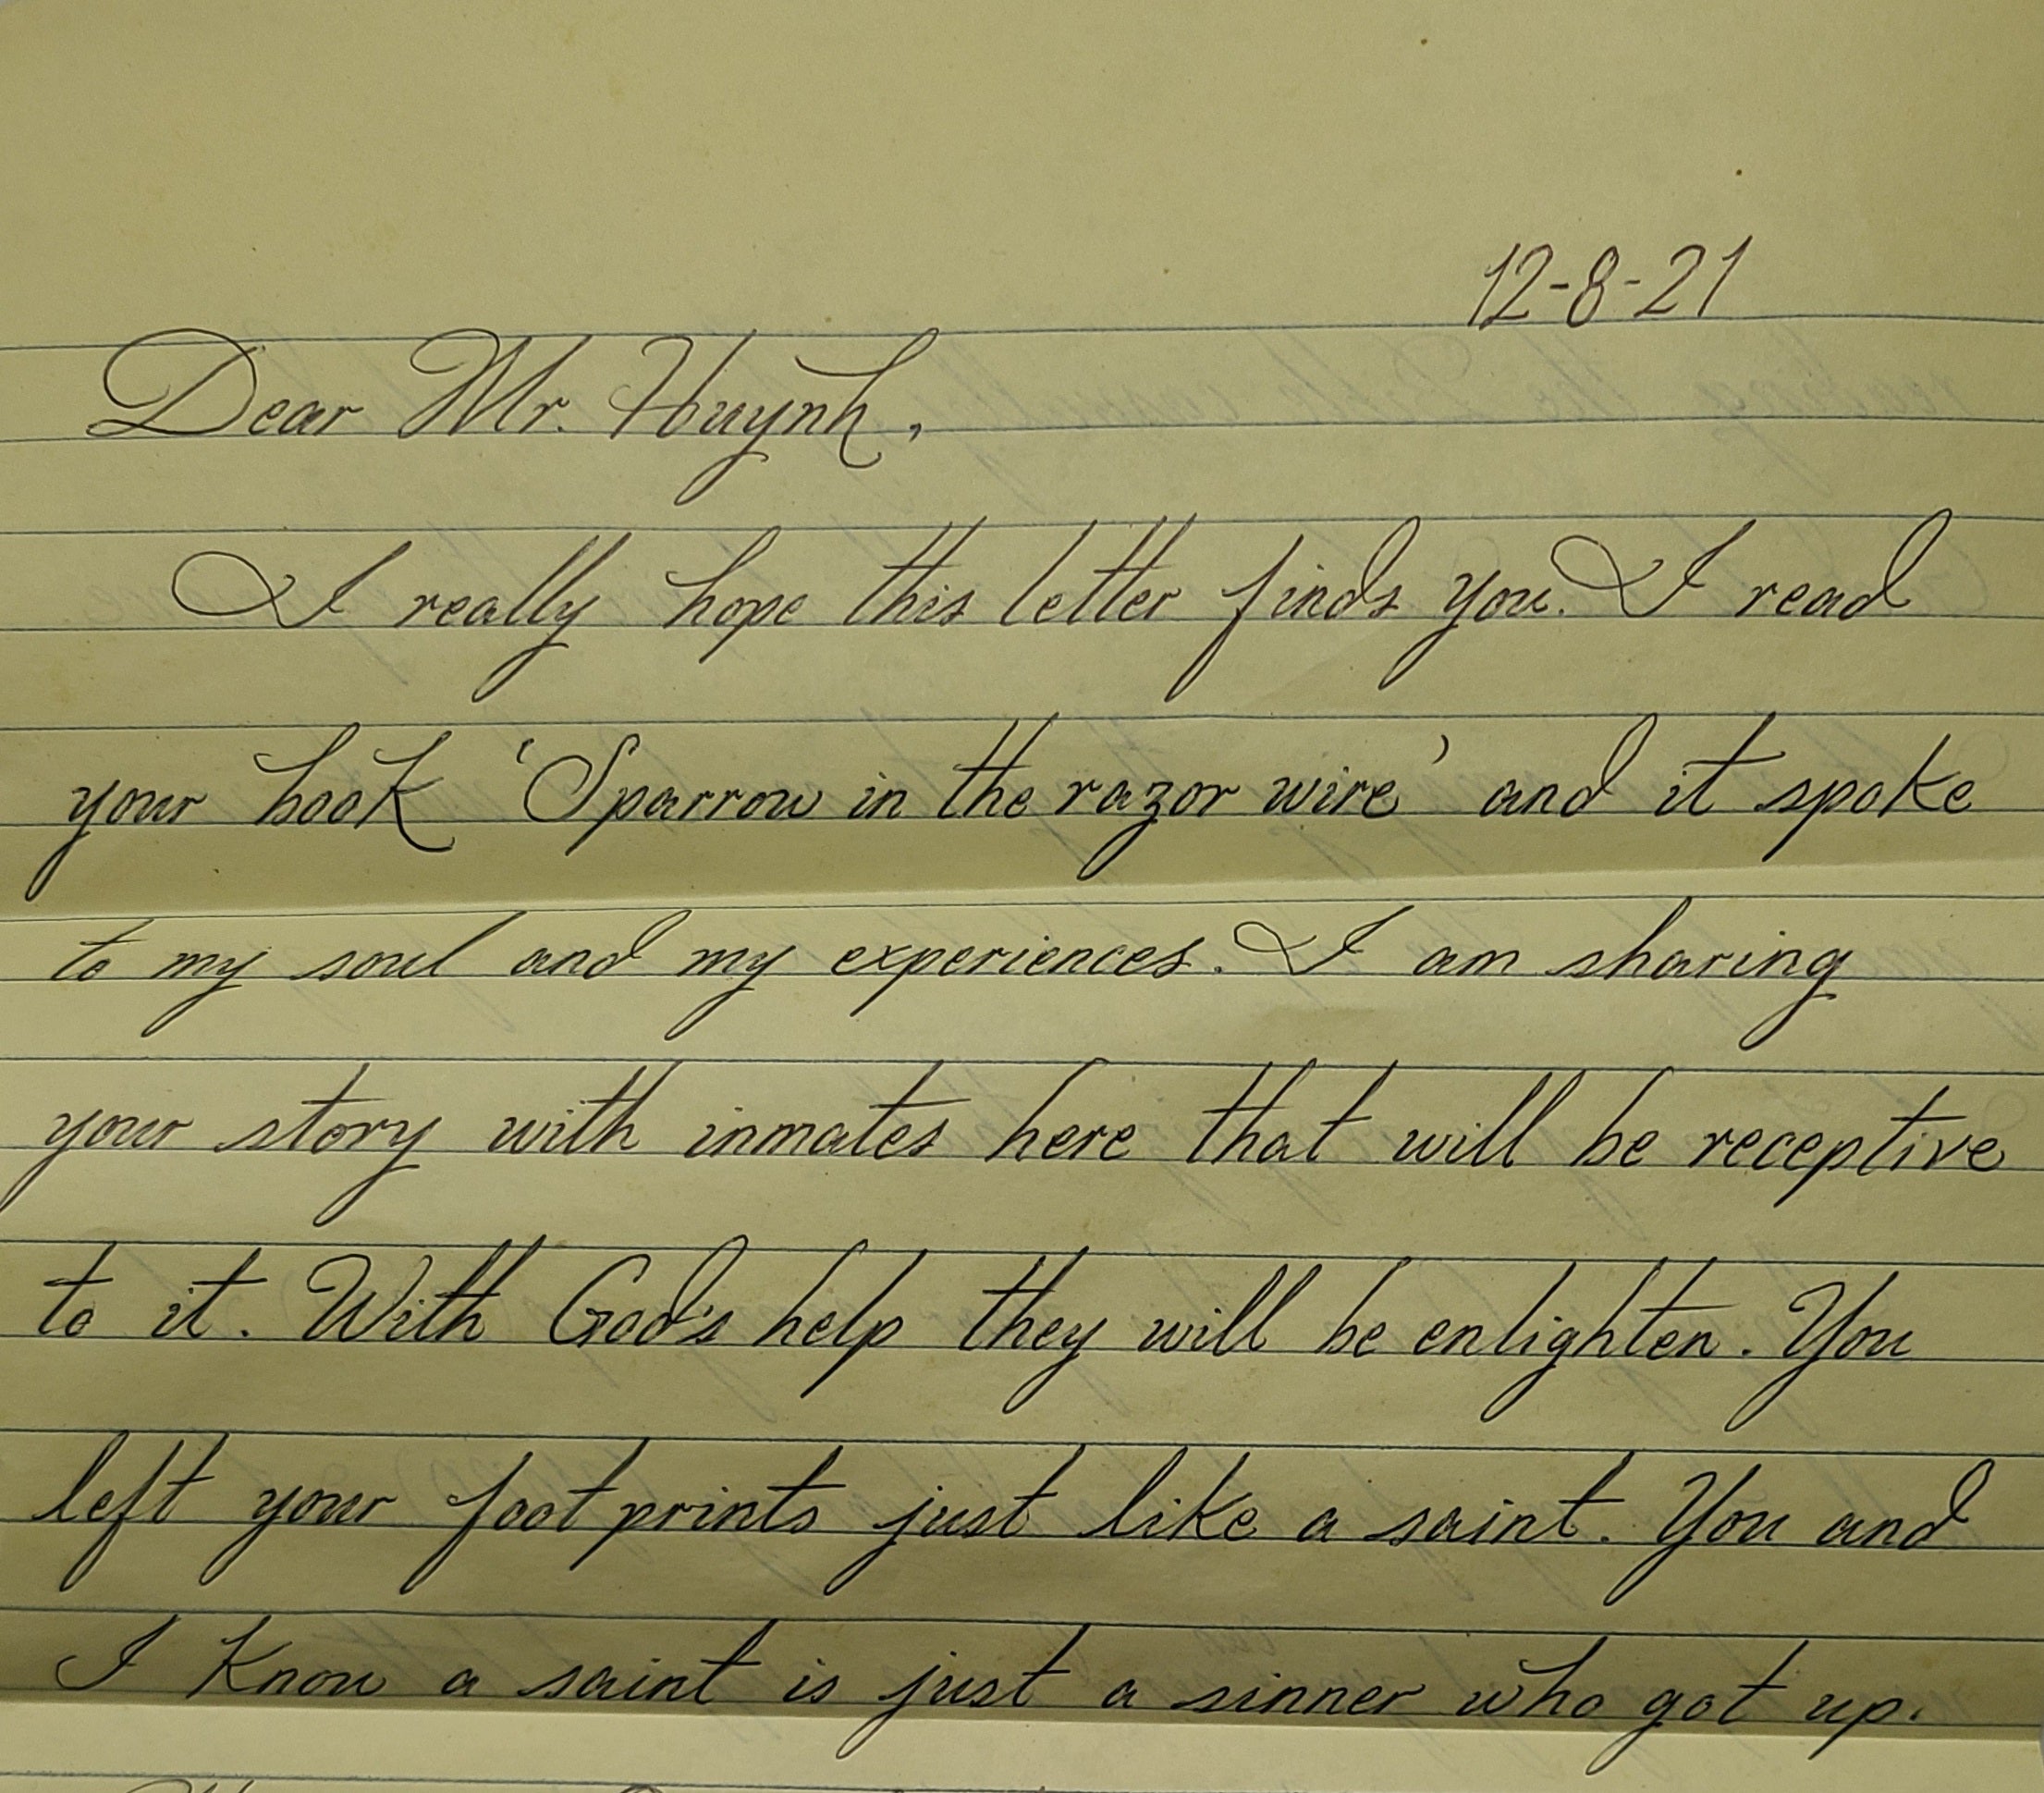 12-8-21
Dear Mr. Huynh,
I really hope this letter finds you. I read
your book 'Sparrow in the razor wire' and it spoke
to my soul and my experiences. I am sharing
your story with inmates here that will be receptive
to it. With God's help they will be enlighten. You
left your footprints just like a saint. You and
I know a saint is just a sinner who got up.